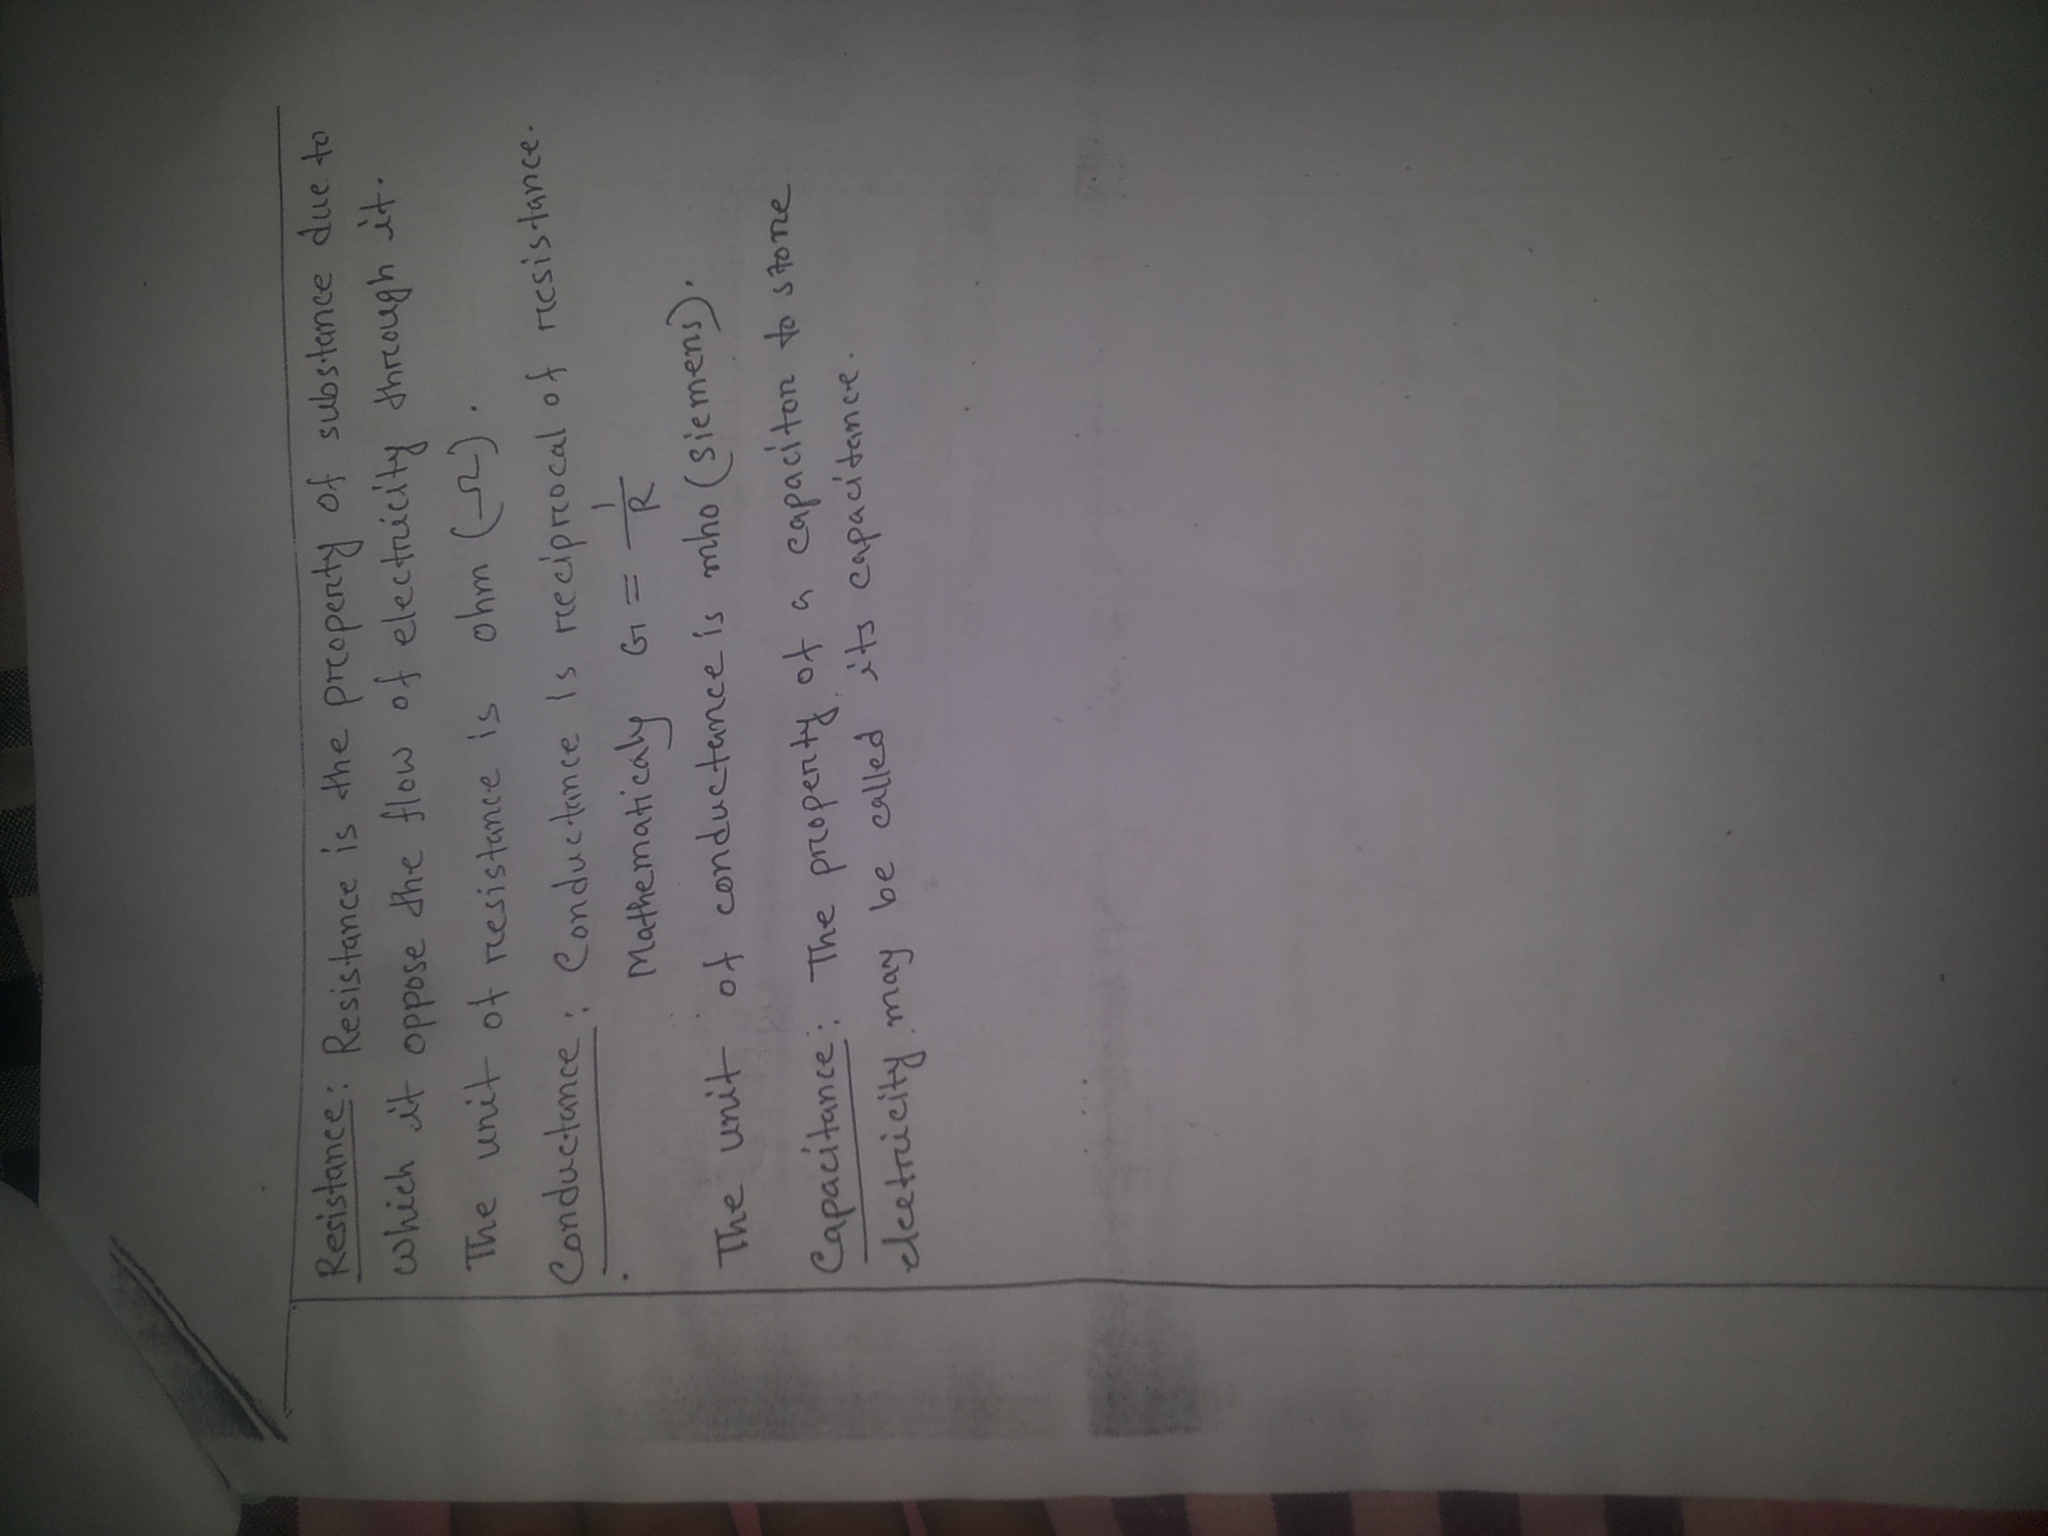 Resistance: Resistance is the property of substance due to
which it oppose the flow of electricity through it.
The unit of resistance is ohm (Ω).
Conductance: Conductance is reciprocal of resistance.
Mathematicaly G = 1/R
The unit of conductance is mho (siemens).
Capacitance: The property of a capacitor to store
electricity may be called its capacitance.